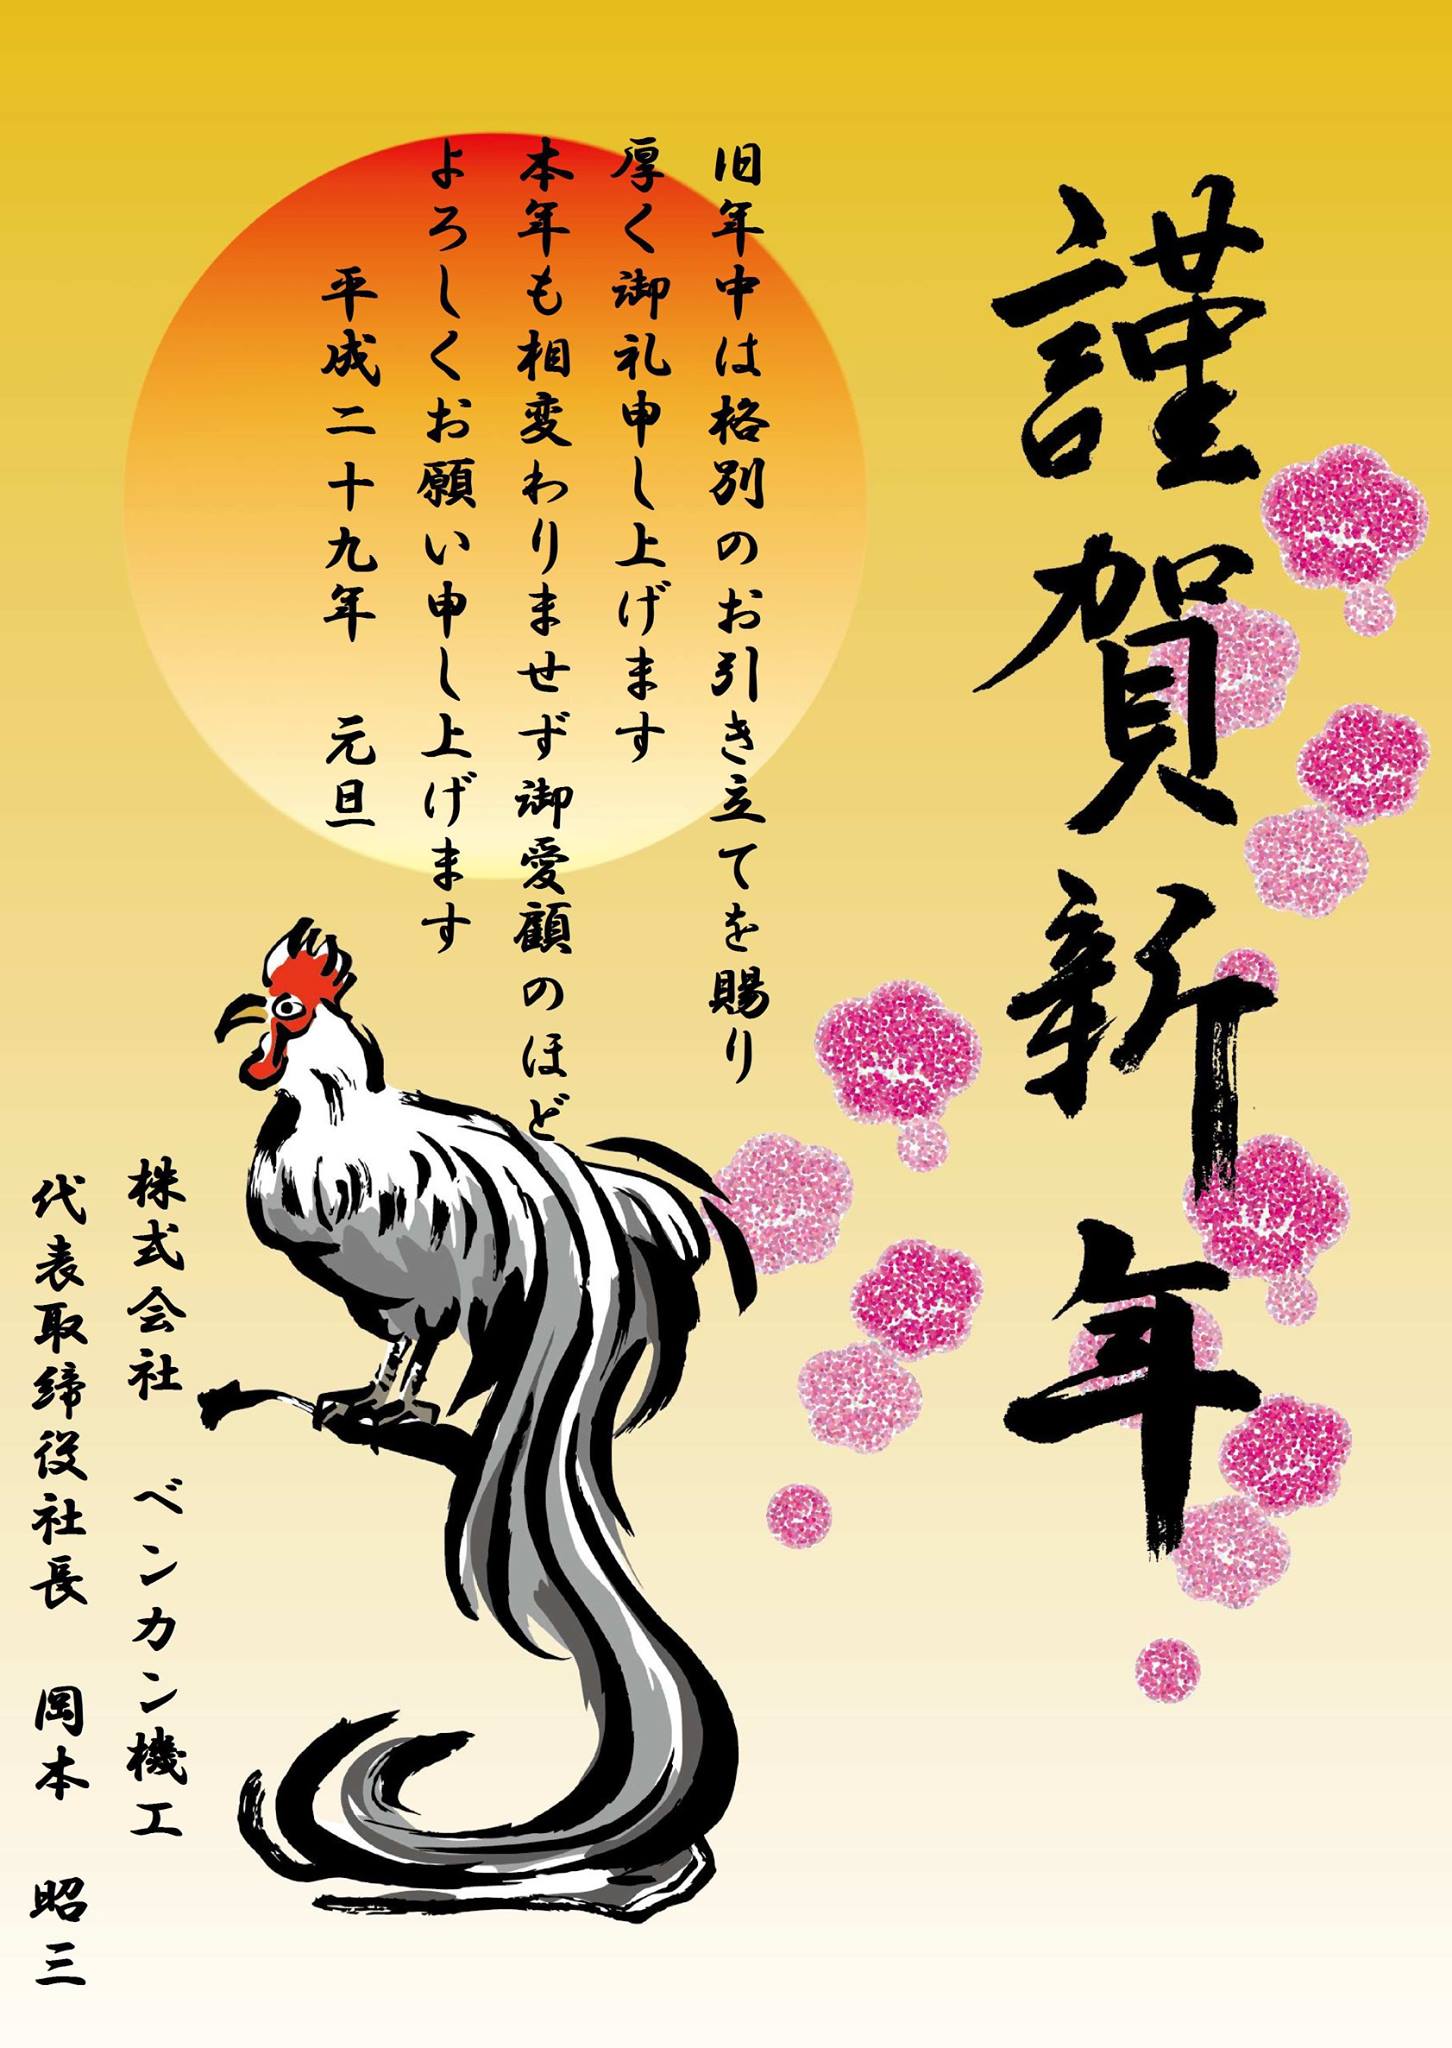 謹賀新年
旧年中は格別のお引き立てを賜り
厚く御礼申し上げます
本年も相変わりませず御愛顧のほど
よろしくお願い申し上げます
平成二十九年 元旦
株式会社 ベンカン機工
代表取締役社長 岡本 昭三